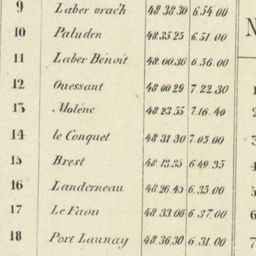 9 Laber vrach 48 38 30 6 54 00
10 Paluden 48 35 25 6 51 00
11 Laber Benoit 48 00 36 6 56 00
12 Ouessant 48 00 29 7 22 30
13 Molène 48 23 55 7 16 40
14 le Conquet 48 31 30 7 05 00
15 Brest 48 6 49 35
16 Landerneau 48 26 45 6 35 00
17 Le Faou 48 33 06 6 37 00
18 Port Launay 48 36 30 6 31 00